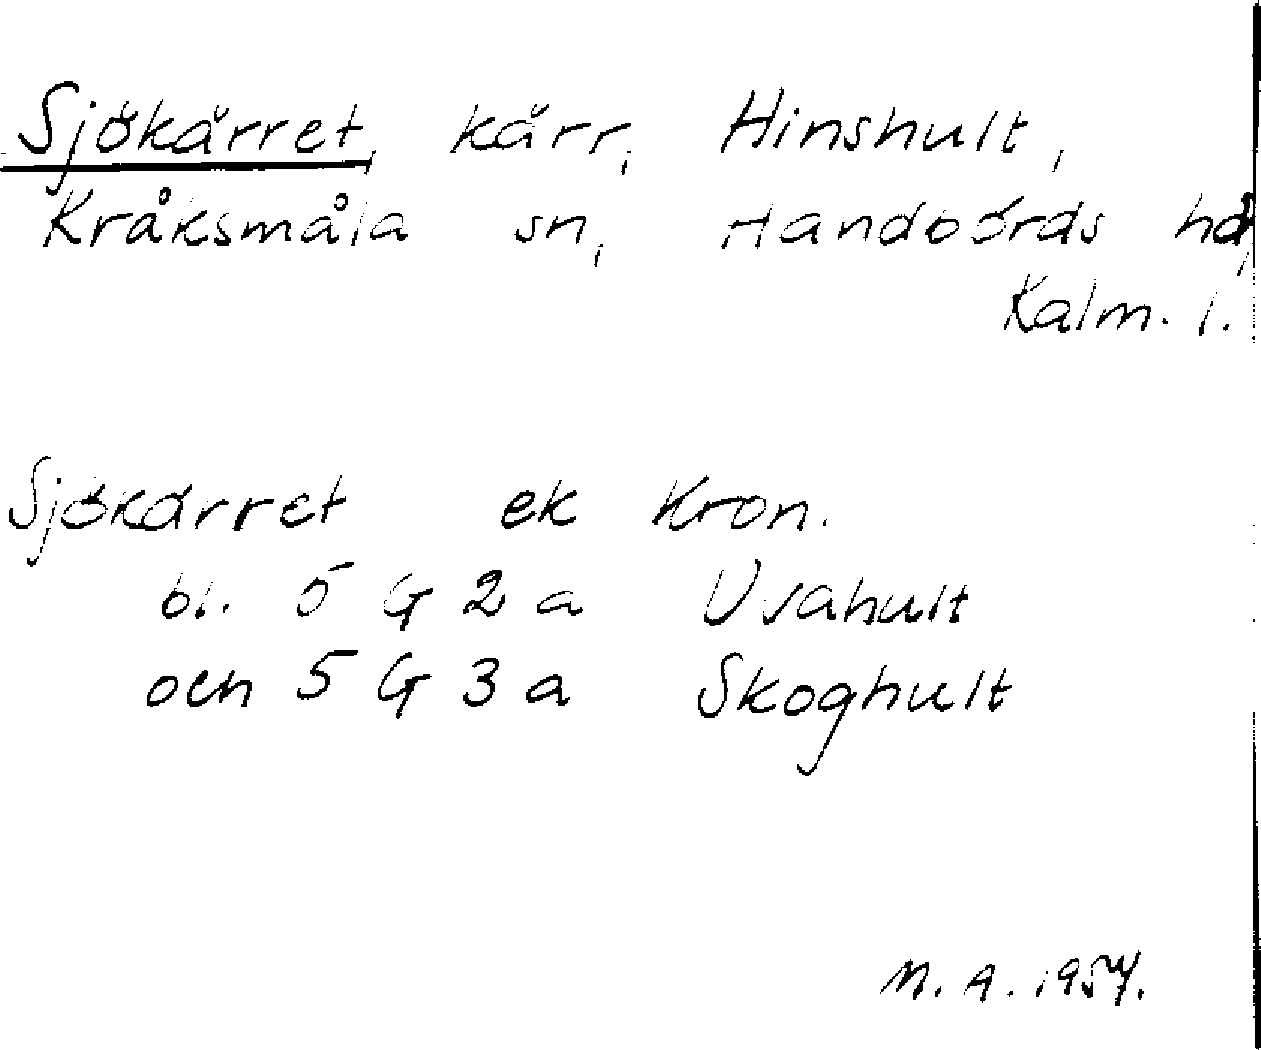 Sjökärret, kärr, Hinshult,
Kråksmåla sn, Handbörds hd,
Kalm. l.
Sjökärret ek Kron.
bl. 5 G 2 a Uvahult
och 5 G 3 a Skoghult
M. A. 1954.